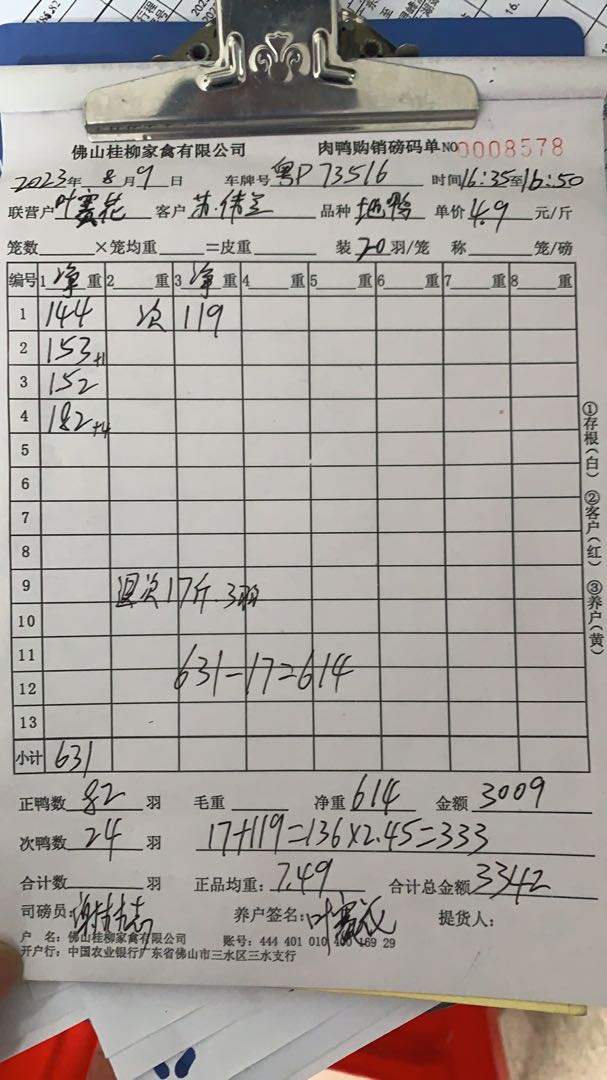 佛山桂柳家禽有限公司 肉鸭购销磅码单 NO 0008578
2023年 8月9日 车牌号 粤P73516 时间16:35至16:50
联营户 叶赛花 客户 苏伟兰 品种 土鸭 单价 4.9 元/斤
笼数 ×笼均重 =皮重 装 20 羽/笼 称 笼/磅
编号 1 净重 2 重 3 净重 4 重 5 重 6 重 7 重 8 重
1 144 次 119
2 153+1
3 152
4 182+4
5
6
7
8
9 退次17斤.3羽
10
11
631-17=614
12
13
小计 631
①存根(白) ②客户(红) ③养户(黄)
正鸭数 82 羽 毛重 净重 614 金额 3009
次鸭数 24 羽 17+119=136×2.45=333
合计数 羽 正品均重: 7.49 合计总金额 3342
司磅员: 养户签名: 叶赛花 提货人:
户 名: 佛山桂柳家禽有限公司 账号: 444 401 010 400 169 29
开户行: 中国农业银行广东省佛山市三水区三水支行